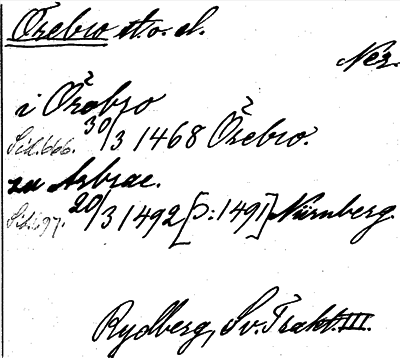 Örebro st. o. l.
Ner.
i Örebro
Sid. 666. 30/3 1468 Örebro.
zu Arbrae.
Sid. 697. 20/3 1492 [ɔ: 1491] Nürnberg.
Rydberg, Sv. Trakt. III.